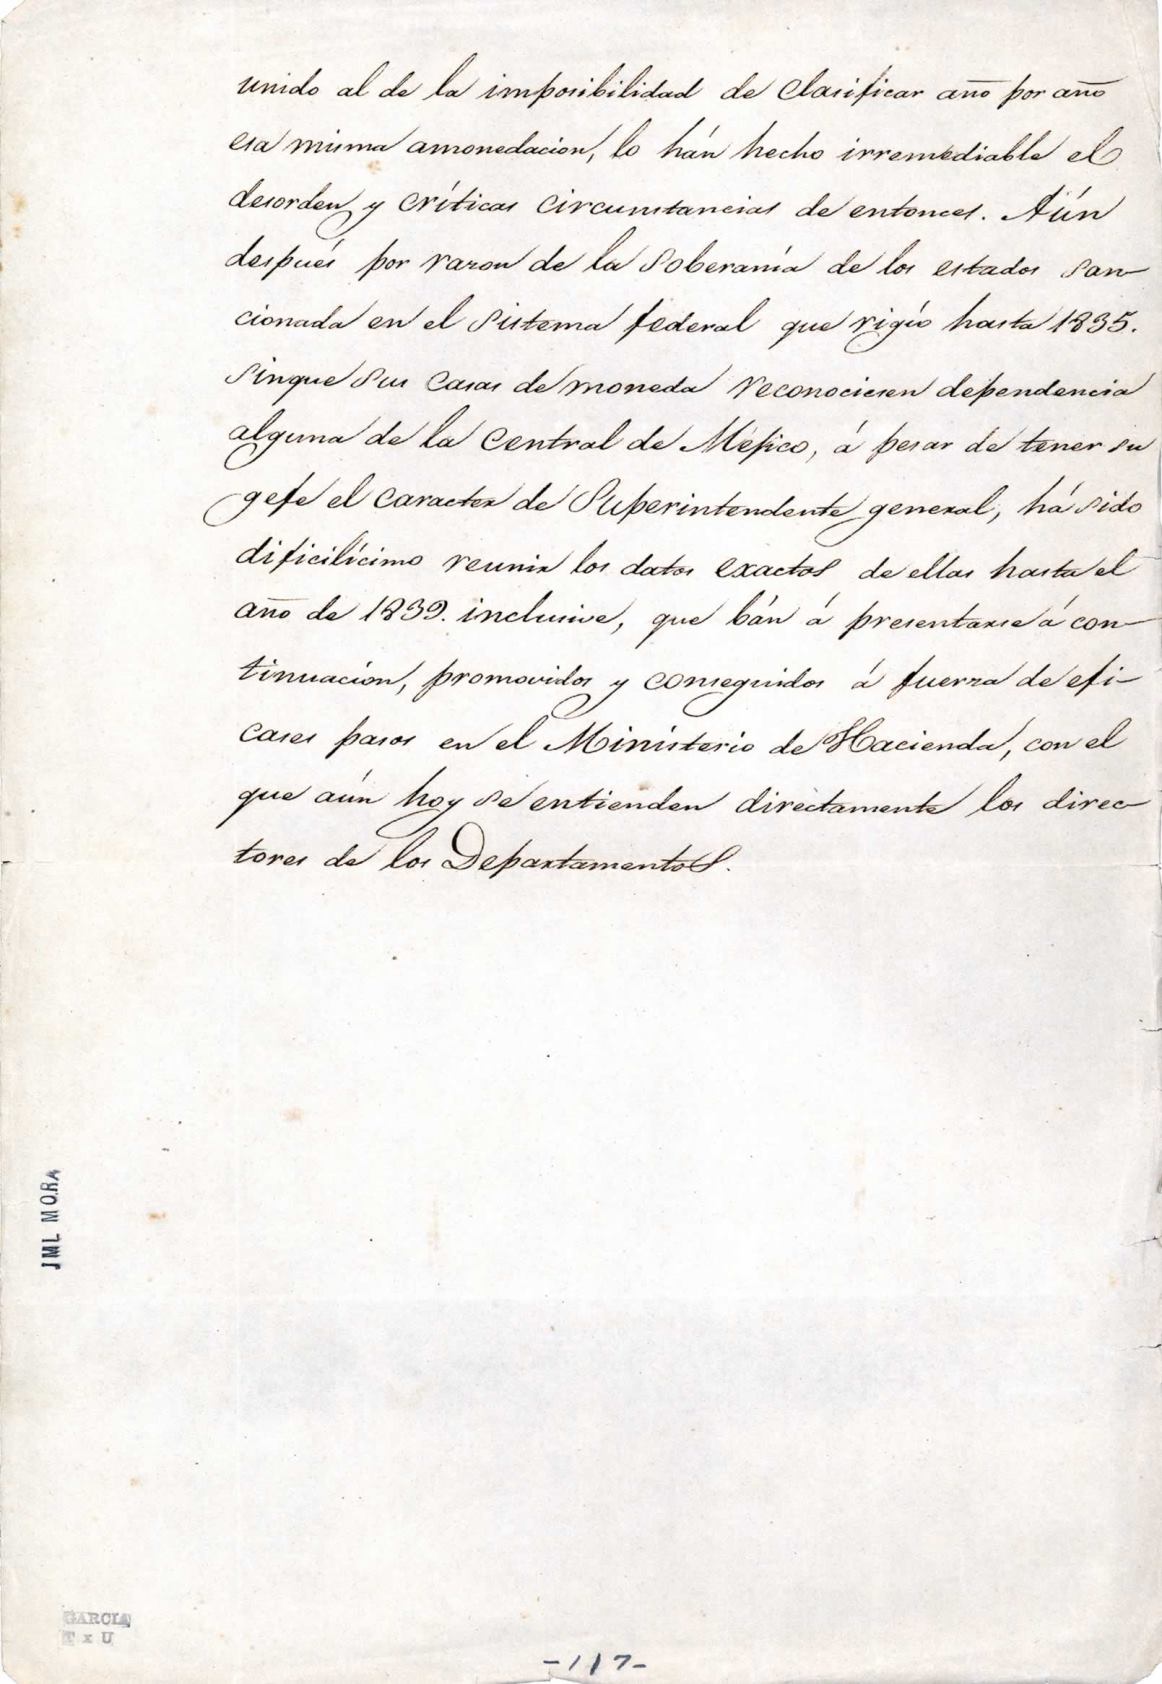 unido al de la imposibilidad de clasificar año por año
esa misma amonedacion, lo hán hecho irremediable el
desorden y críticas circunstancias de entonces. Aún
despues por razon de la Soberanía de los estados san-
cionada en el sistema federal que rigío hasta 1835.
sinque sus casas de moneda reconociesen dependencia
alguna de la central de Méjico, á pesar de tener su
gefe el caracter de Superintendente general, há sido
dificilícimo reunir los datos exactos de ellas hasta el
año de 1839. inclusive, que bán á presentarse á con-
tinuacion, promovidos y conseguidos á fuerza de efi-
cases pasos en el Ministerio de Hacienda, con el
que aún hoy se entienden directamente los direc-
tores de los Departamentos.
JML MORA
GARCIA
T x U
-117-